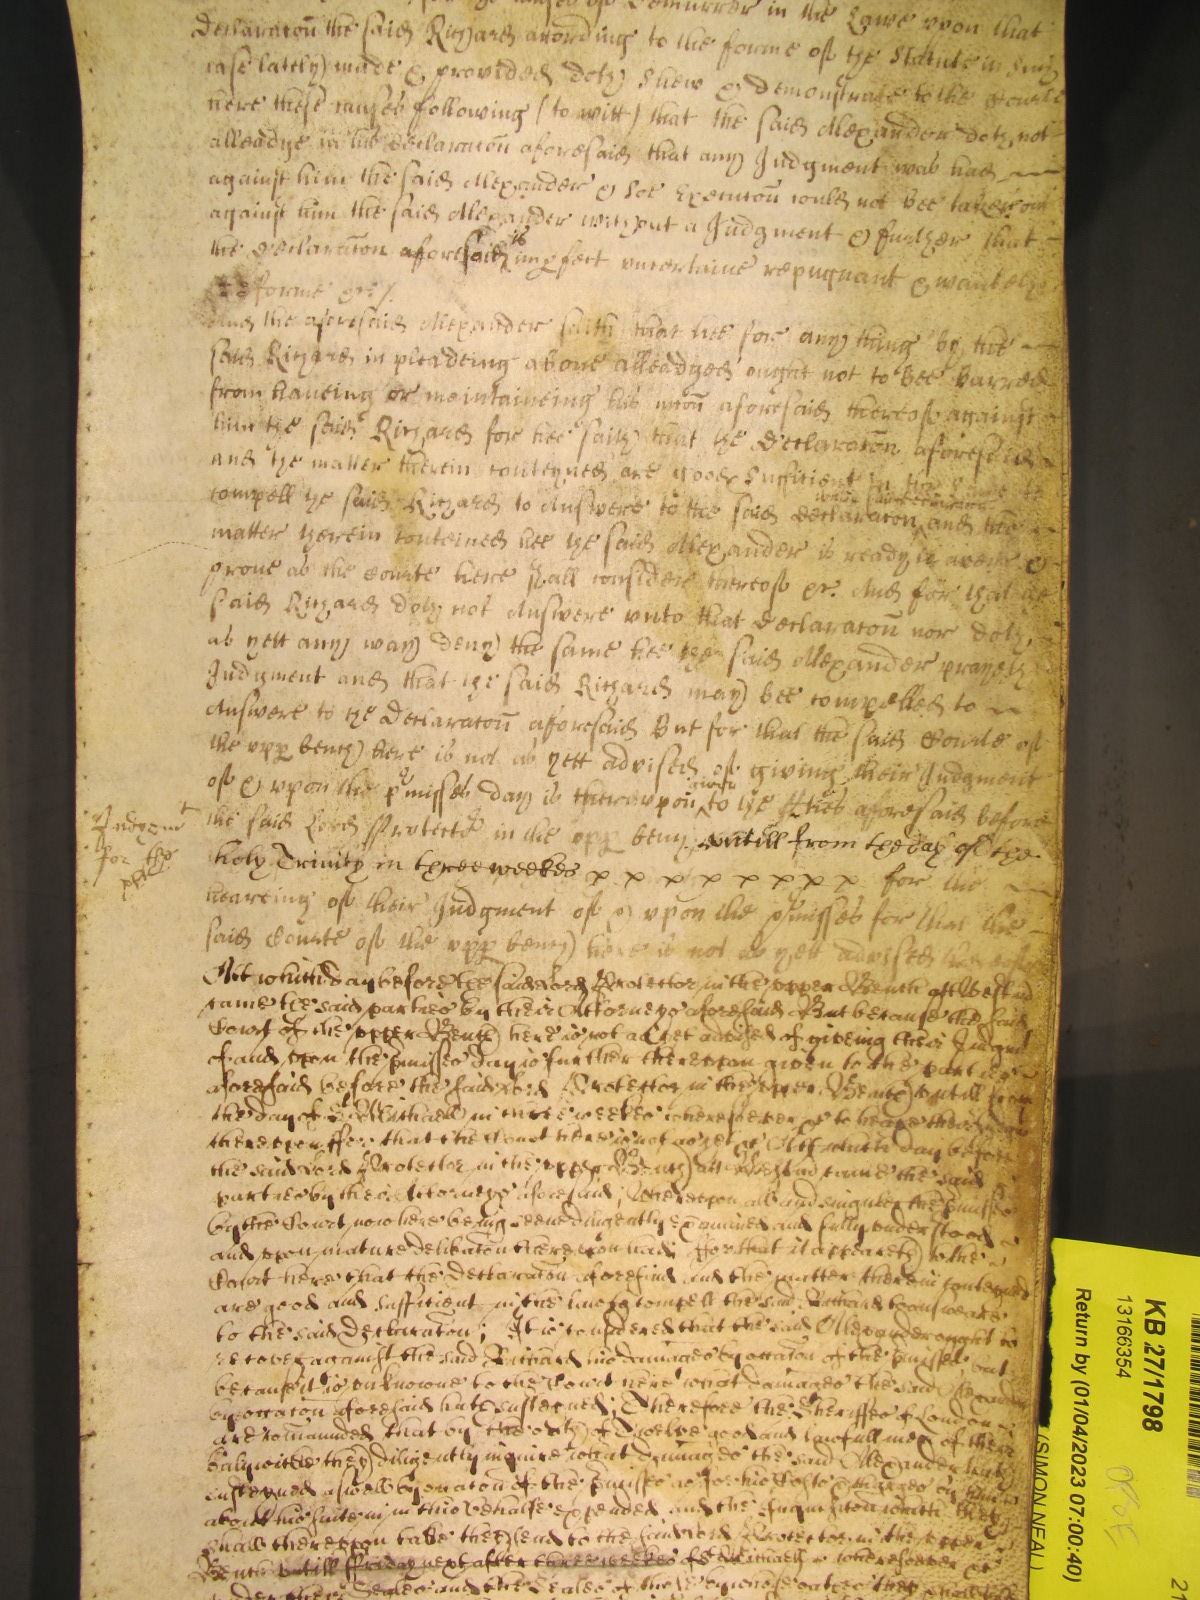 of Demurrer in the Lawe vpon that
Declaraton the said Richard acording to the forme of the Statute in such
case lately made & provided doth shew & demonstrate to the Courte
here these causes following (to witt) that the said Alexander doth not
alleadge in his Declaraton aforesaid that any Judgment was had
against him the said Alexander & soe Execution could not bee taken out
against him the said Alexander without a Judgment & further that
the Declaraton aforesaid is imperfect vncertaine repugnant & wanteth
forme &c/
And the aforesaid Alexander saith that hee for any thing by the
said Richard in pleadeing aboue alleadged ought not to bee barred
from haueing or maintaineing his accon aforesaid thereof against
him the said Richard for hee saith that the Declaraton aforesaid
and the matter therein conteyned are good & sufficient in the Lawe to
compell the said Richard to Answere to the said Declaraton and the
matter therein conteined hee the said Alexander is ready to averr &
proue as the Courte here shall consider thereof &c. And for that the
said Richard doth not Answere vnto that Declaraton nor doth
as yett any way deny the same hee the said Alexander prayeth
Judgment and that the said Richard may bee compelled to
Answere to the Declaraton aforesaid But for that the said Courte of
the vpp bench here is not as yett advised of giving their Judgment
of & vpon the pmisses day is therevpon given to the pties aforesaid before
Judgmt
for the
pltf
the said Lord Protector in the vpp bench vntill from the day of the
holy Trinity in three weekes x x x x x x x x x for the
heareing of their Judgment of & vpon the pmisses for that the
said Courte of the vpp bench here is not as yett advised
Att which day before the said Lord Protector in the vpper Bench att Westmr
came the said parties by their Attorneys aforesaid But because the said
Court of the vpper Bench here is not as yet advised of giveing their Judgmt
of and vpon the pmisses day is further therevpon given to the parties
aforesaid before the said Lord Protector in the vpper Bench vntill from
the day of St Michaell in three weekes wheresoever &c to heare their
therevpon for that the Court here is not as yet &c Att which day before
the said Lord Protector in the vpper Bench att Westmr came the said
parties by their Attorneys aforesaid; Wherevpon all and singuler the pmisses
by the Court now here being seene diligently examined and fully vnderstood
and vpon mature deliberaton therevpon had; for that it appeareth to the
Court here that the Declaraton aforesaid and the matter therein conteyned
are good and sufficient in the law to compell the said Richard to answeare
to the said Declaraton; It is considered that the said Alexander ought to
recover against the said Richard his damages by occasion of the pmisses but
because it is vnknowne to the Court here what damages the said Alexander
by occasion aforesaid hath susteyned; Therefore the Sheriffes of London
are comanded that by the oath of Twelve good and lawfull men of their
bailywicke they diligently inquire what damages the said Alexander hath
susteyned aswell by occasion of the pmisses as for his Costs & charges by him
about his suite in this behalfe expended and the Inquisiton which they
shall therevpon take they send to the said Lord Protector in the vpper
Bench vntill ffriday next after three weekes of St Michaell wheresoever &c
Seales and the Seales of those by whose oathes they shall
KB 27/1798
13166354
Return by (01/04/2023 07:00:40)
(SIMON NEAL)